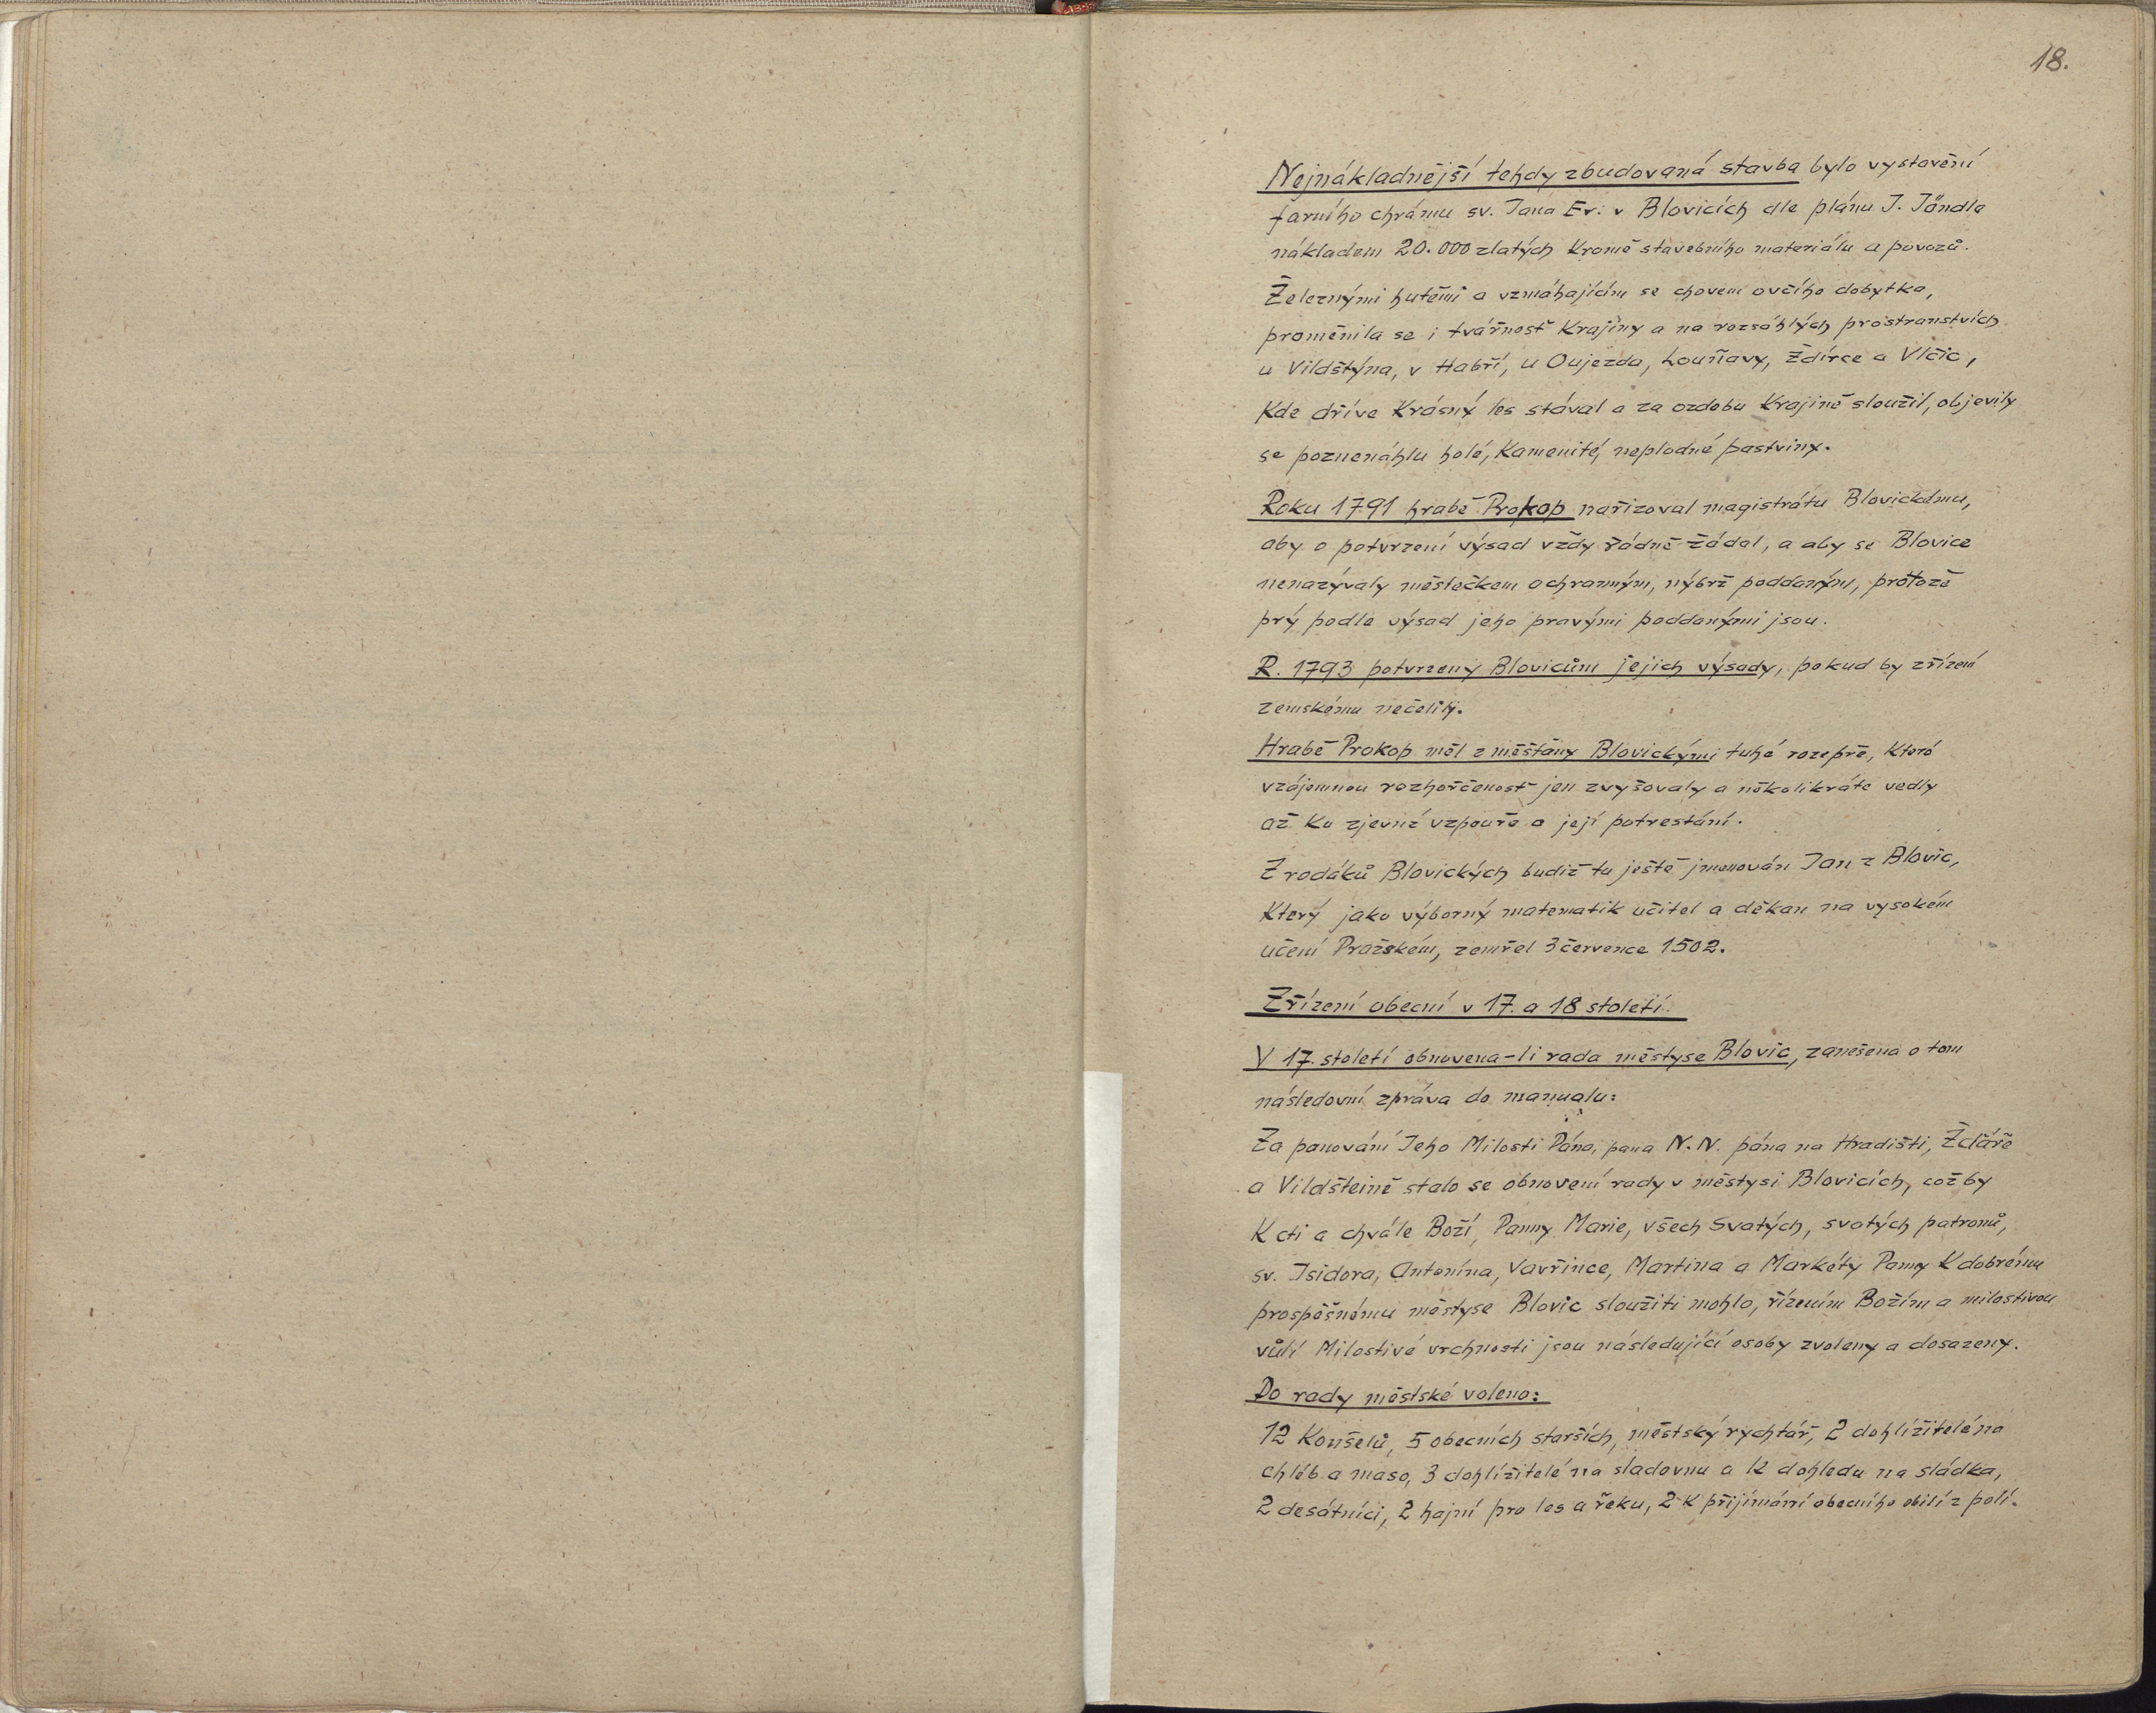 18.
Nejnákladnější tehdy zbudovaná stavba bylo vystavění
farního chrámu sv. Jana Ev. v Blovicích dle plánu J. Jöndla
nákladem 20.000 zlatých kromě stavebního materiálu a povozů.
Železnými hutěmi a vzmáhajícím se chovem ovčího dobytka,
proměnila se i tvářnosť krajiny a na rozsáhlých prostranstvích
u Vildštýna, v Habří, u Oujezda, Louňavy, Ždírce a Vlčic,
kde dříve krásný les stával a za ozdobu krajině sloužil, objevily
se poznenáhlu holé, kamenité, neplodné pastviny.
Roku 1791 hrabě Prokop nařizoval magistrátu Blovickému,
aby o potvrzení výsad vždy řádně žádal, a aby se Blovice
nenazývaly městečkem ochranným, nýbrž poddaným, protože
prý podle výsad jeho pravými poddanými jsou.
R. 1793 potvrzeny Blovicům jejich výsady, pokud by zřízení
zemskému nečelily.
Hrabě Prokop měl z měšťany Blovickými tuhé rozepře, které
vzájemnou rozhořčenosť jen zvyšovaly a několikráte vedly
až ku zjevné vzpouře a její potrestání.
Z rodáků Blovických budiž tu ještě jmenován Jan z Blovic,
který jako výborný matematik učitel a děkan na vysokém
učení Pražském, zemřel 3 července 1502.
Zřízení obecní v 17. a 18 století.
V 17. století obnovena-li rada městyse Blovic, zanešena o tom
následovní zpráva do manualu:
Za panování Jeho Milosti Pána, pana N.N. pána na Hradišti, Žďáře
a Vildšteině stalo se obnovení rady v městysi Blovicích, což by
K cti a chvále Boží, Panny Marie, všech Svatých, svatých patronů,
sv. Isidora, Antonína, Vavřince, Martina a Markéty Panny K dobrému
prospěšnému městyse Blovic sloužiti mohlo, řízením Božím a milostivou
vůlí Milostivé vrchnosti jsou následující osoby zvoleny a dosazeny.
Do rady městské voleno:
12 Konšelů, 5 obecních starších, městský rychtář, 2 dohlížitelé na
chléb a maso, 3 dohlížitelé na sladovnu a k dohledu na sládka,
2 desátníci, 2 hajní pro les a řeku, 2 k přijímání obecního obilí z polí.